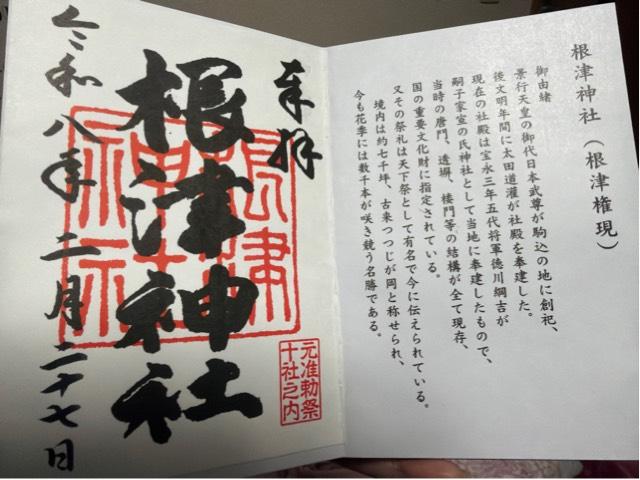 根津神社(根津権現)
御由緒
景行天皇の御代日本武尊が駒込の地に創祀、
後文明年間に太田道灌が社殿を奉建した。
現在の社殿は宝永三年五代将軍徳川綱吉が
嗣子家宣の氏神社として当地に奉建したもので、
当時の唐門、透塀、楼門等の結構が全て現存、
国の重要文化財に指定されている。
又その祭礼は天下祭として有名で今に伝えられている。
境内は約七千坪、古来つつじが岡と称せられ、
今も花季には数千本が咲き競う名勝である。
奉拝
根津神社
根津神社
元准勅祭
十社之内
令和八年二月二十七日